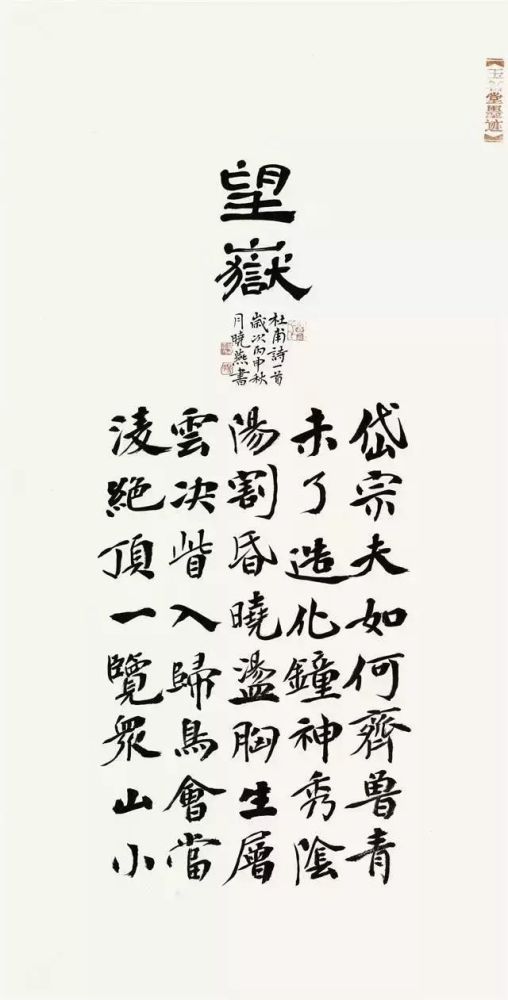 堂墨迹
望
嶽
杜甫詩一首
歲次丙申秋
月曉燕書
岱宗夫如何齊魯青
未了造化鐘神秀陰
陽割昏曉盪胸生層
雲决眥入歸鳥會當
淩絕頂一覽眾山小